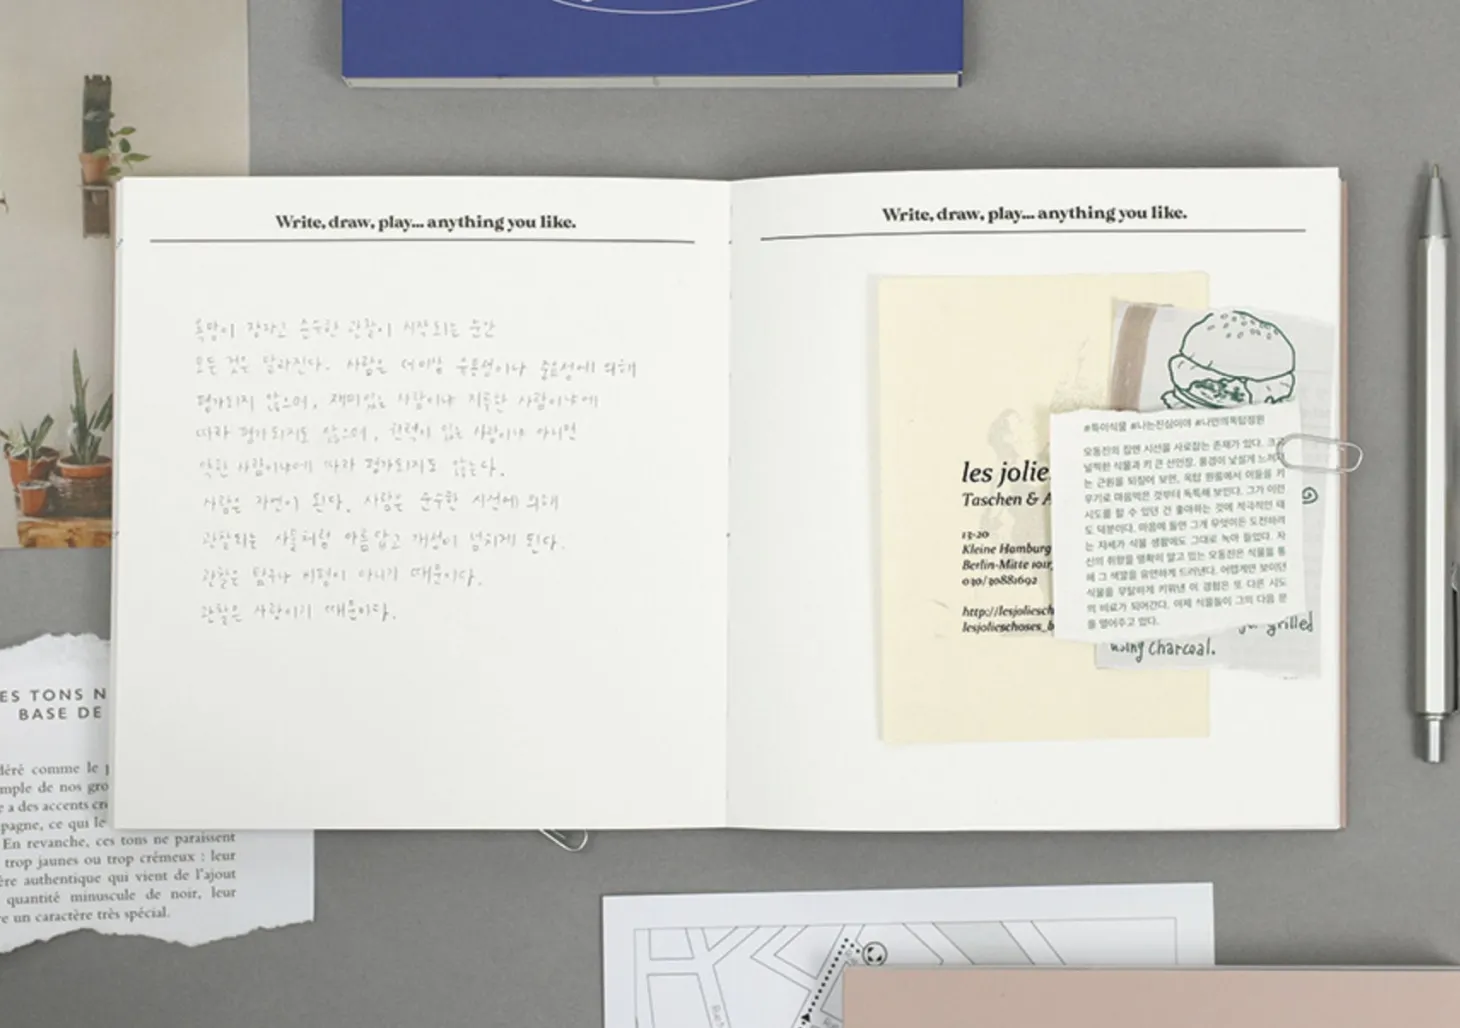 Write, draw, play... anything you like.
욕망이 잠자고 순수한 관찰이 시작되는 순간
모든 것은 달라진다. 사람은 더이상 유용성이나 중요성에 의해
평가되지 않으며, 재미있는 사람이냐 지루한 사람이냐에
따라 평가되지도 않으며, 현력이 있는 사람이냐 아니면
약한 사람이냐에 따라 평가되지도 않는다.
사람은 자연이 된다. 사람은 순수한 시선에 의해
관찰되는 사물처럼 아름답고 개성이 넘치게 된다.
관찰은 탐구나 비평이 아니기 때문이다.
관찰은 사랑이기 때문이다.
Write, draw, play... anything you like.
les jolie
Taschen & A
13-20
Kleine Hamburg
Berlin-Mitte 101
030/30881692
http://lesjoliesch
lesjolieschoses_b
#특이식물 #나는진심이야 #나만의옥탑정원
오동진의 집엔 시선을 사로잡는 존재가 있다. 크고
널찍한 식물과 키 큰 선인장. 풍경이 낯설게 느껴지
는 근원을 되짚어 보면, 옥탑 원룸에서 이들을 키
우기로 마음먹은 것부터 독특해 보인다. 그가 이런
시도를 할 수 있던 건 좋아하는 것에 적극적인 태
도 덕분이다. 마음에 들면 그게 무엇이든 도전하려
는 자세가 식물 생활에도 그대로 녹아 들었다. 자
신의 취향을 명확히 알고 있는 오동진은 식물을 통
해 그 색깔을 유연하게 드러낸다. 어렵게만 보이던
식물을 무탈하게 키워낸 이 경험은 또 다른 시도
의 비료가 되어간다. 이제 식물들이 그의 다음 문
을 열어주고 있다.
grilled
using charcoal.
ES TONS N
BASE DE
déré comme le
mple de nos gro
e a des accents cr
pagne, ce qui le
En revanche, ces tons ne paraissent
trop jaunes ou trop crémeux : leur
ère authentique qui vient de l'ajout
quantité minuscule de noir, leur
re un caractère très spécial.